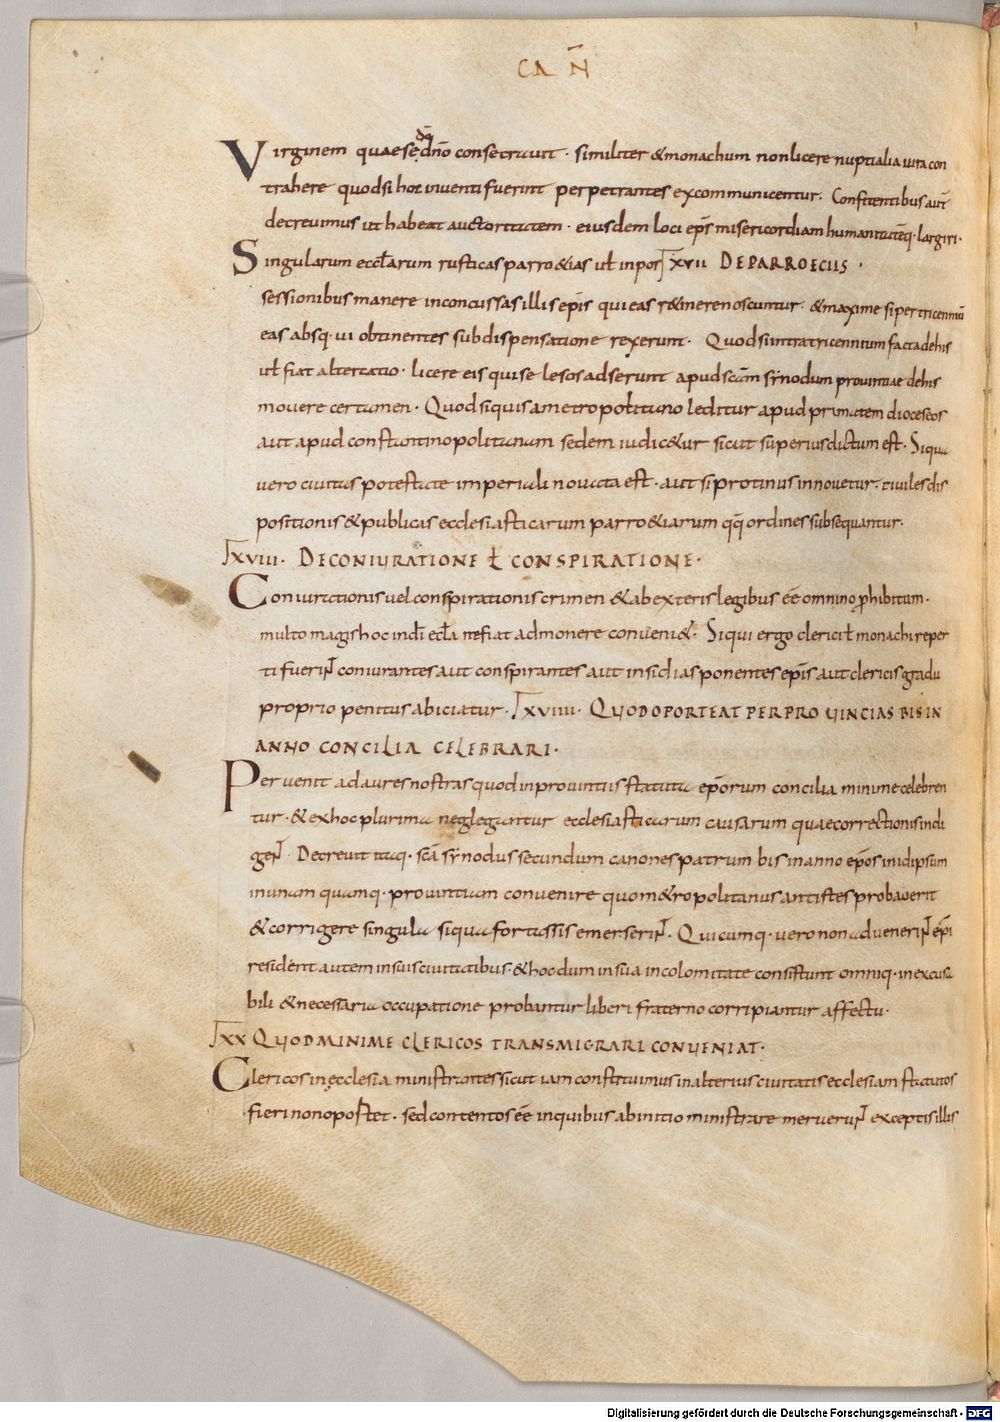 CAN̄
Virginem quae se dn̄o consecrauit · similiter & monachum non licere nuptialia iura con
trahere quod si hoc inuenti fuerint perpetrantes excommunicentur. Confitentibus aut̄
decreuimus ut habeat auctoritatem · eiusdem loci ep̄s misericordiam humanitatēq· largiri·
Singularum eccl̄arum rusticas parro&ias ul̄ in pos XVII DE PARROECIIS ·
sessionibus manere inconcussas illis ep̄is qui eas r&inere noscuntur · & maxime si per tricenniū
eas absq· ui obtinentes sub dispensatione rexerunt· Quod si intra tricennium facta de his
ul̄ fiat altercatio · licere eis qui se lesos adserunt apud sc̄am synodum prouintiae de his
mouere certamen · Quod si quis a metropolitano leditur apud primatem dioceseos
aut apud constantinopolitanam sedem iudic&ur sicut superius dictum est · Si qua
uero ciuitas potestate imperiali nouata est · aut si protinus innouetur · ciuiles dis
positionis & publicas ecclesiasticarum parro&iarum qq̄ ordines subsequantur·
XVIII· DE CONIURATIONE ł CONSPIRATIONE·
Coniurationis uel conspirationis crimen & ab exteris legibus ēē omnino prohibitum·
multo magis hoc in dī eccl̄a ne fiat admonere conueni&· Si qui ergo clerici ł monachi reper
ti fuerint coniurantes aut conspirantes aut insidias ponentes ep̄is aut clericis gradu
proprio penitus abiciatur · XVIIII· QUOD OPORTEAT PER PROUINCIAS BIS IN
ANNO CONCILIA CELEBRARI·
Peruenit ad aures nostras quod in prouintiis statuta ep̄orum concilia minime celebren
tur · & ex hoc plurima negleguntur ecclesiasticarum causarum quae correctionis indi
gent · Decreuit itaq· sc̄a synodus secundum canones patrum bis in anno ep̄os in idipsum
in unam quamq· prouintiam conuenire quo m&ropolitanus antistes probauerit
& corrigere singula si qua fortassis emerserint · Quicumq· uero non aduenerint ep̄i
resident autem in suis ciuitatibus · & hoc dum in sua incolomitate consistunt omniq· inexcusa
bili & necessaria occupatione probantur liberi fraterno corripiantur affectu·
XX QUOD MINIME CLERICOS TRANSMIGRARI CONUENIAT·
Clericos in ecclesia ministrantes sicut iam constituimus in alterius ciuitatis ecclesiam statutos
fieri non opostet · sed contentos ēē in quibus ab initio ministrare meruerunt exceptis illis
Digitalisierung gefördert durch die Deutsche Forschungsgemeinschaft - DFG